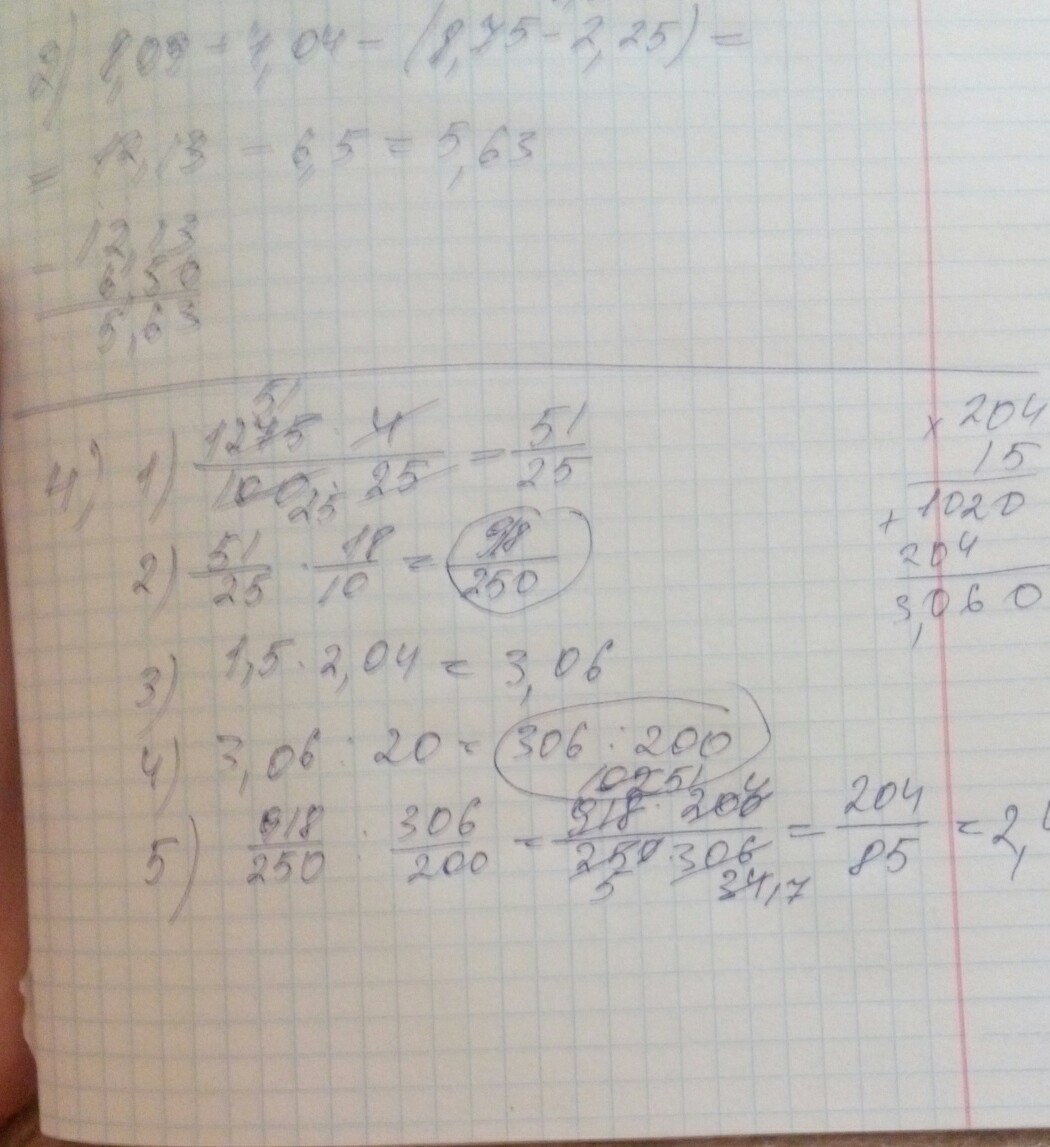 2) 8,09 + 4,04 - (8,75 - 2,25) =
= 12,13 - 6,5 = 5,63
12,13
- 6,50
5,63
51
4) 1) 1275 · 4 / 100 · 25 = 51/25
25
2) 51/25 · 18/10 = 918/250
3) 1,5 · 2,04 = 3,06
4) 3,06 : 20 = 306 : 200
102 51 4
5) 918/250 : 306/200 = 918 · 200 / 250 · 306 = 204/85 = 2,
5 34,17
× 204
15
+ 1020
204
3,060